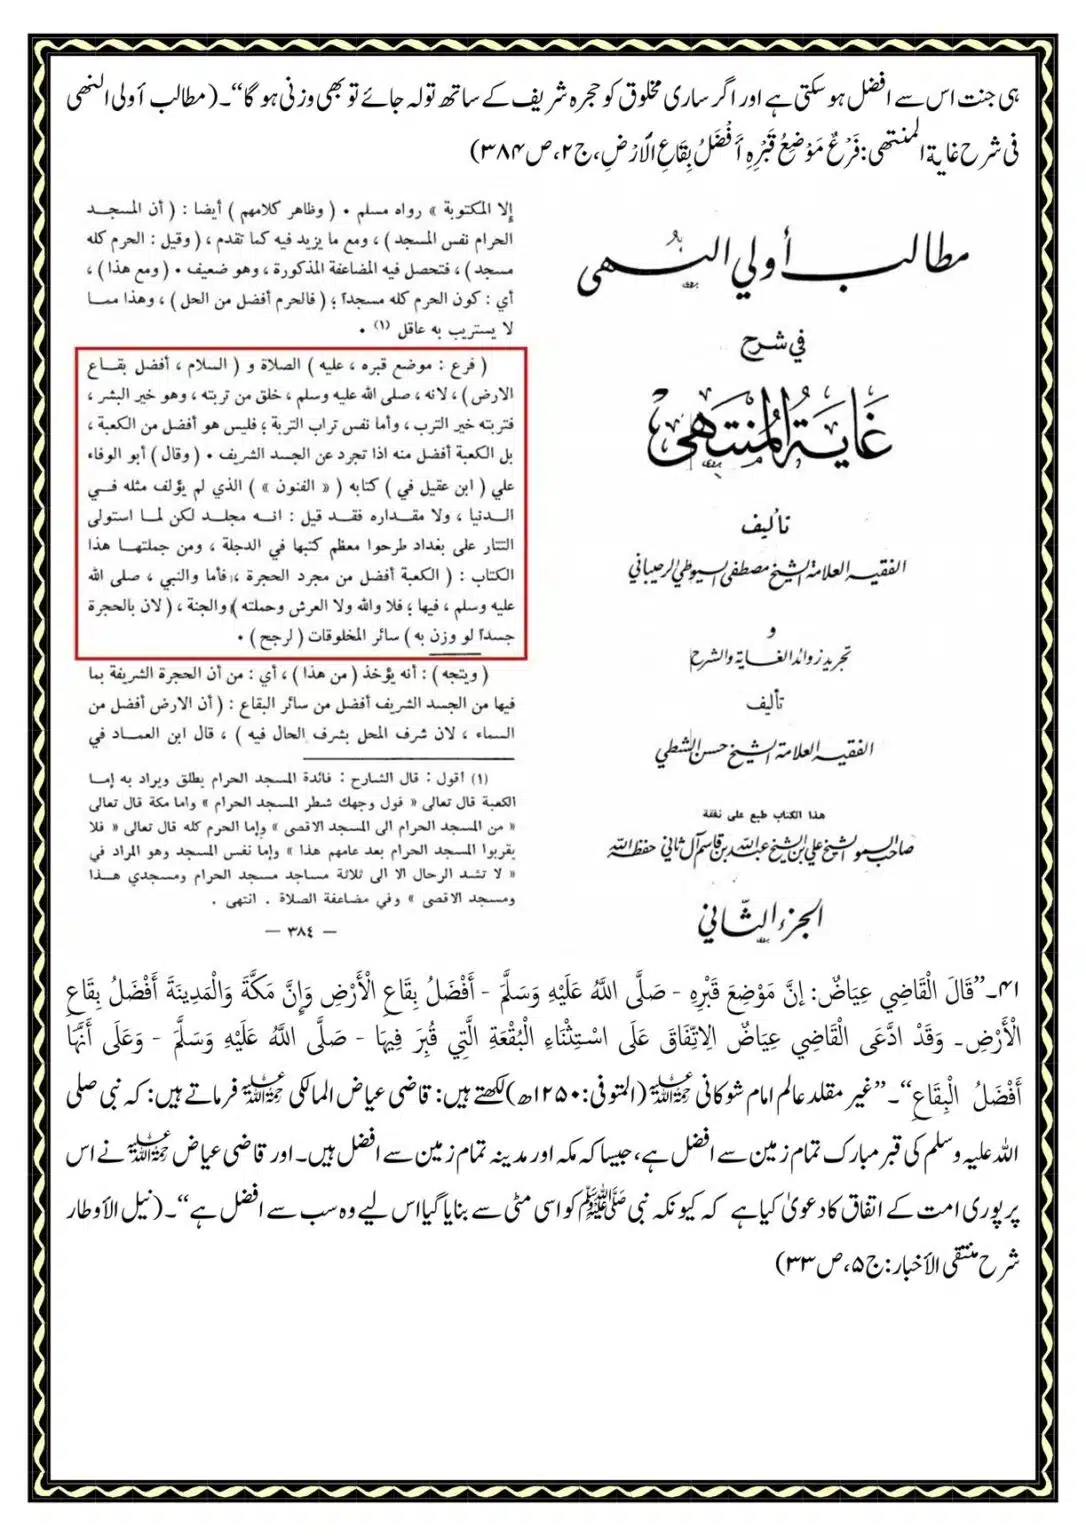 ہی جنت اس سے افضل ہو سکتی ہے اور اگر ساری مخلوق کو حجرہ شریف کے ساتھ تولہ جائے تو بھی وزنی ہو گا“۔ (مطالب أولی النهى
فی شرح غایة المنتهى: فَرْعٌ مَوْضِعُ قَبْرِهِ أَفْضَلُ بِقَاعِ الْأَرْضِ، ج۲، ص۳۸۴)
مطالب أولي النهى
في شرح
غَايَةِ المُنْتَهَى
تأليف
الفقيه العلامة الشيخ مصطفى السيوطي الرحيباني
و
تجريد زوائد الغاية والشرح
تأليف
الفقيه العلامة الشيخ حسن الشطي
هذا الكتاب طبع على نفقة
صاحب السمو الشيخ علي بن الشيخ عبد الله بن قاسم آل ثاني حفظه الله
الجزء الثاني
إلا المكتوبة » رواه مسلم ٠ ( وظاهر كلامهم ) أيضا : ( أن المسجد
الحرام نفس المسجد ) ، ومع ما يزيد فيه كما تقدم ، ( وقيل : الحرم كله
مسجد ) ، فتحصل فيه المضاعفة المذكورة ، وهو ضعيف ٠ ( ومع هذا ) ،
أي : كون الحرم كله مسجداً ؛ ( فالحرم أفضل من الحل ) ، وهذا مما
لا يستريب به عاقل (١) ٠
( فرع : موضع قبره ، عليه ) الصلاة و ( السلام ، أفضل بقاع
الارض ) ، لانه ، صلى الله عليه وسلم ، خلق من تربته ، وهو خير البشر ،
فتربته خير الترب ، وأما نفس تراب التربة ؛ فليس هو أفضل من الكعبة ،
بل الكعبة أفضل منه اذا تجرد عن الجسد الشريف ٠ ( وقال ) أبو الوفاء
علي ( ابن عقيل في ) كتابه ( « الفنون » ) الذي لم يؤلف مثله في
الدنيا ، ولا مقداره فقد قيل : انه مجلد لكن لما استولى
التتار على بغداد طرحوا معظم كتبها في الدجلة ، ومن جملتها هذا
الكتاب : ( الكعبة أفضل من مجرد الحجرة ، فأما والنبي ، صلى الله
عليه وسلم ، فيها ؛ فلا والله ولا العرش وحملته ) والجنة ، ( لان بالحجرة
جسداً لو وزن به ) سائر المخلوقات ( لرجح ) ٠
( ويتجه ) : أنه يؤخذ ( من هذا ) ، أي : من أن الحجرة الشريفة بما
فيها من الجسد الشريف أفضل من سائر البقاع : ( أن الارض أفضل من
السماء ، لان شرف المحل بشرف الحال فيه ) ، قال ابن العماد في
(١) أقول : قال الشارح : فائدة المسجد الحرام يطلق ويراد به إما
الكعبة قال تعالى « فول وجهك شطر المسجد الحرام » واما مكة قال تعالى
« من المسجد الحرام الى المسجد الاقصى » وإما الحرم كله قال تعالى « فلا
يقربوا المسجد الحرام بعد عامهم هذا » وإما نفس المسجد وهو المراد في
« لا تشد الرحال الا الى ثلاثة مساجد مسجد الحرام ومسجدي هذا
ومسجد الاقصى » وفي مضاعفة الصلاة . انتهى .
— ٣٨٤ —
۴۱۔ ”قَالَ الْقَاضِي عِيَاضٌ: إنَّ مَوْضِعَ قَبْرِهِ - صَلَّى اللَّهُ عَلَيْهِ وَسَلَّمَ - أَفْضَلُ بِقَاعِ الْأَرْضِ وَإِنَّ مَكَّةَ وَالْمَدِينَةَ أَفْضَلُ بِقَاعِ
الْأَرْضِ۔ وَقَدْ ادَّعَى الْقَاضِي عِيَاضٌ الِاتِّفَاقَ عَلَى اسْتِثْنَاءِ الْبُقْعَةِ الَّتِي قُبِرَ فِيهَا - صَلَّى اللَّهُ عَلَيْهِ وَسَلَّمَ - وَعَلَى أَنَّهَا
أَفْضَلُ الْبِقَاعِ“۔ ”غیر مقلد عالم امام شوکانی رحمۃ اللہ علیہ (المتوفی: ۱۲۵۰ھ) لکھتے ہیں: قاضی عیاض المالکی رحمۃ اللہ علیہ فرماتے ہیں: کہ نبی صلی
اللہ علیہ وسلم کی قبر مبارک تمام زمین سے افضل ہے، جیسا کہ مکہ اور مدینہ تمام زمین سے افضل ہیں۔ اور قاضی عیاض رحمۃ اللہ علیہ نے اس
پر پوری امت کے اتفاق کا دعویٰ کیا ہے کہ کیونکہ نبی ﷺ کو اسی مٹی سے بنایا گیا اس لیے وہ سب سے افضل ہے“۔ (نیل الأوطار
شرح منتقی الأخبار: ج۵، ص۳۳)